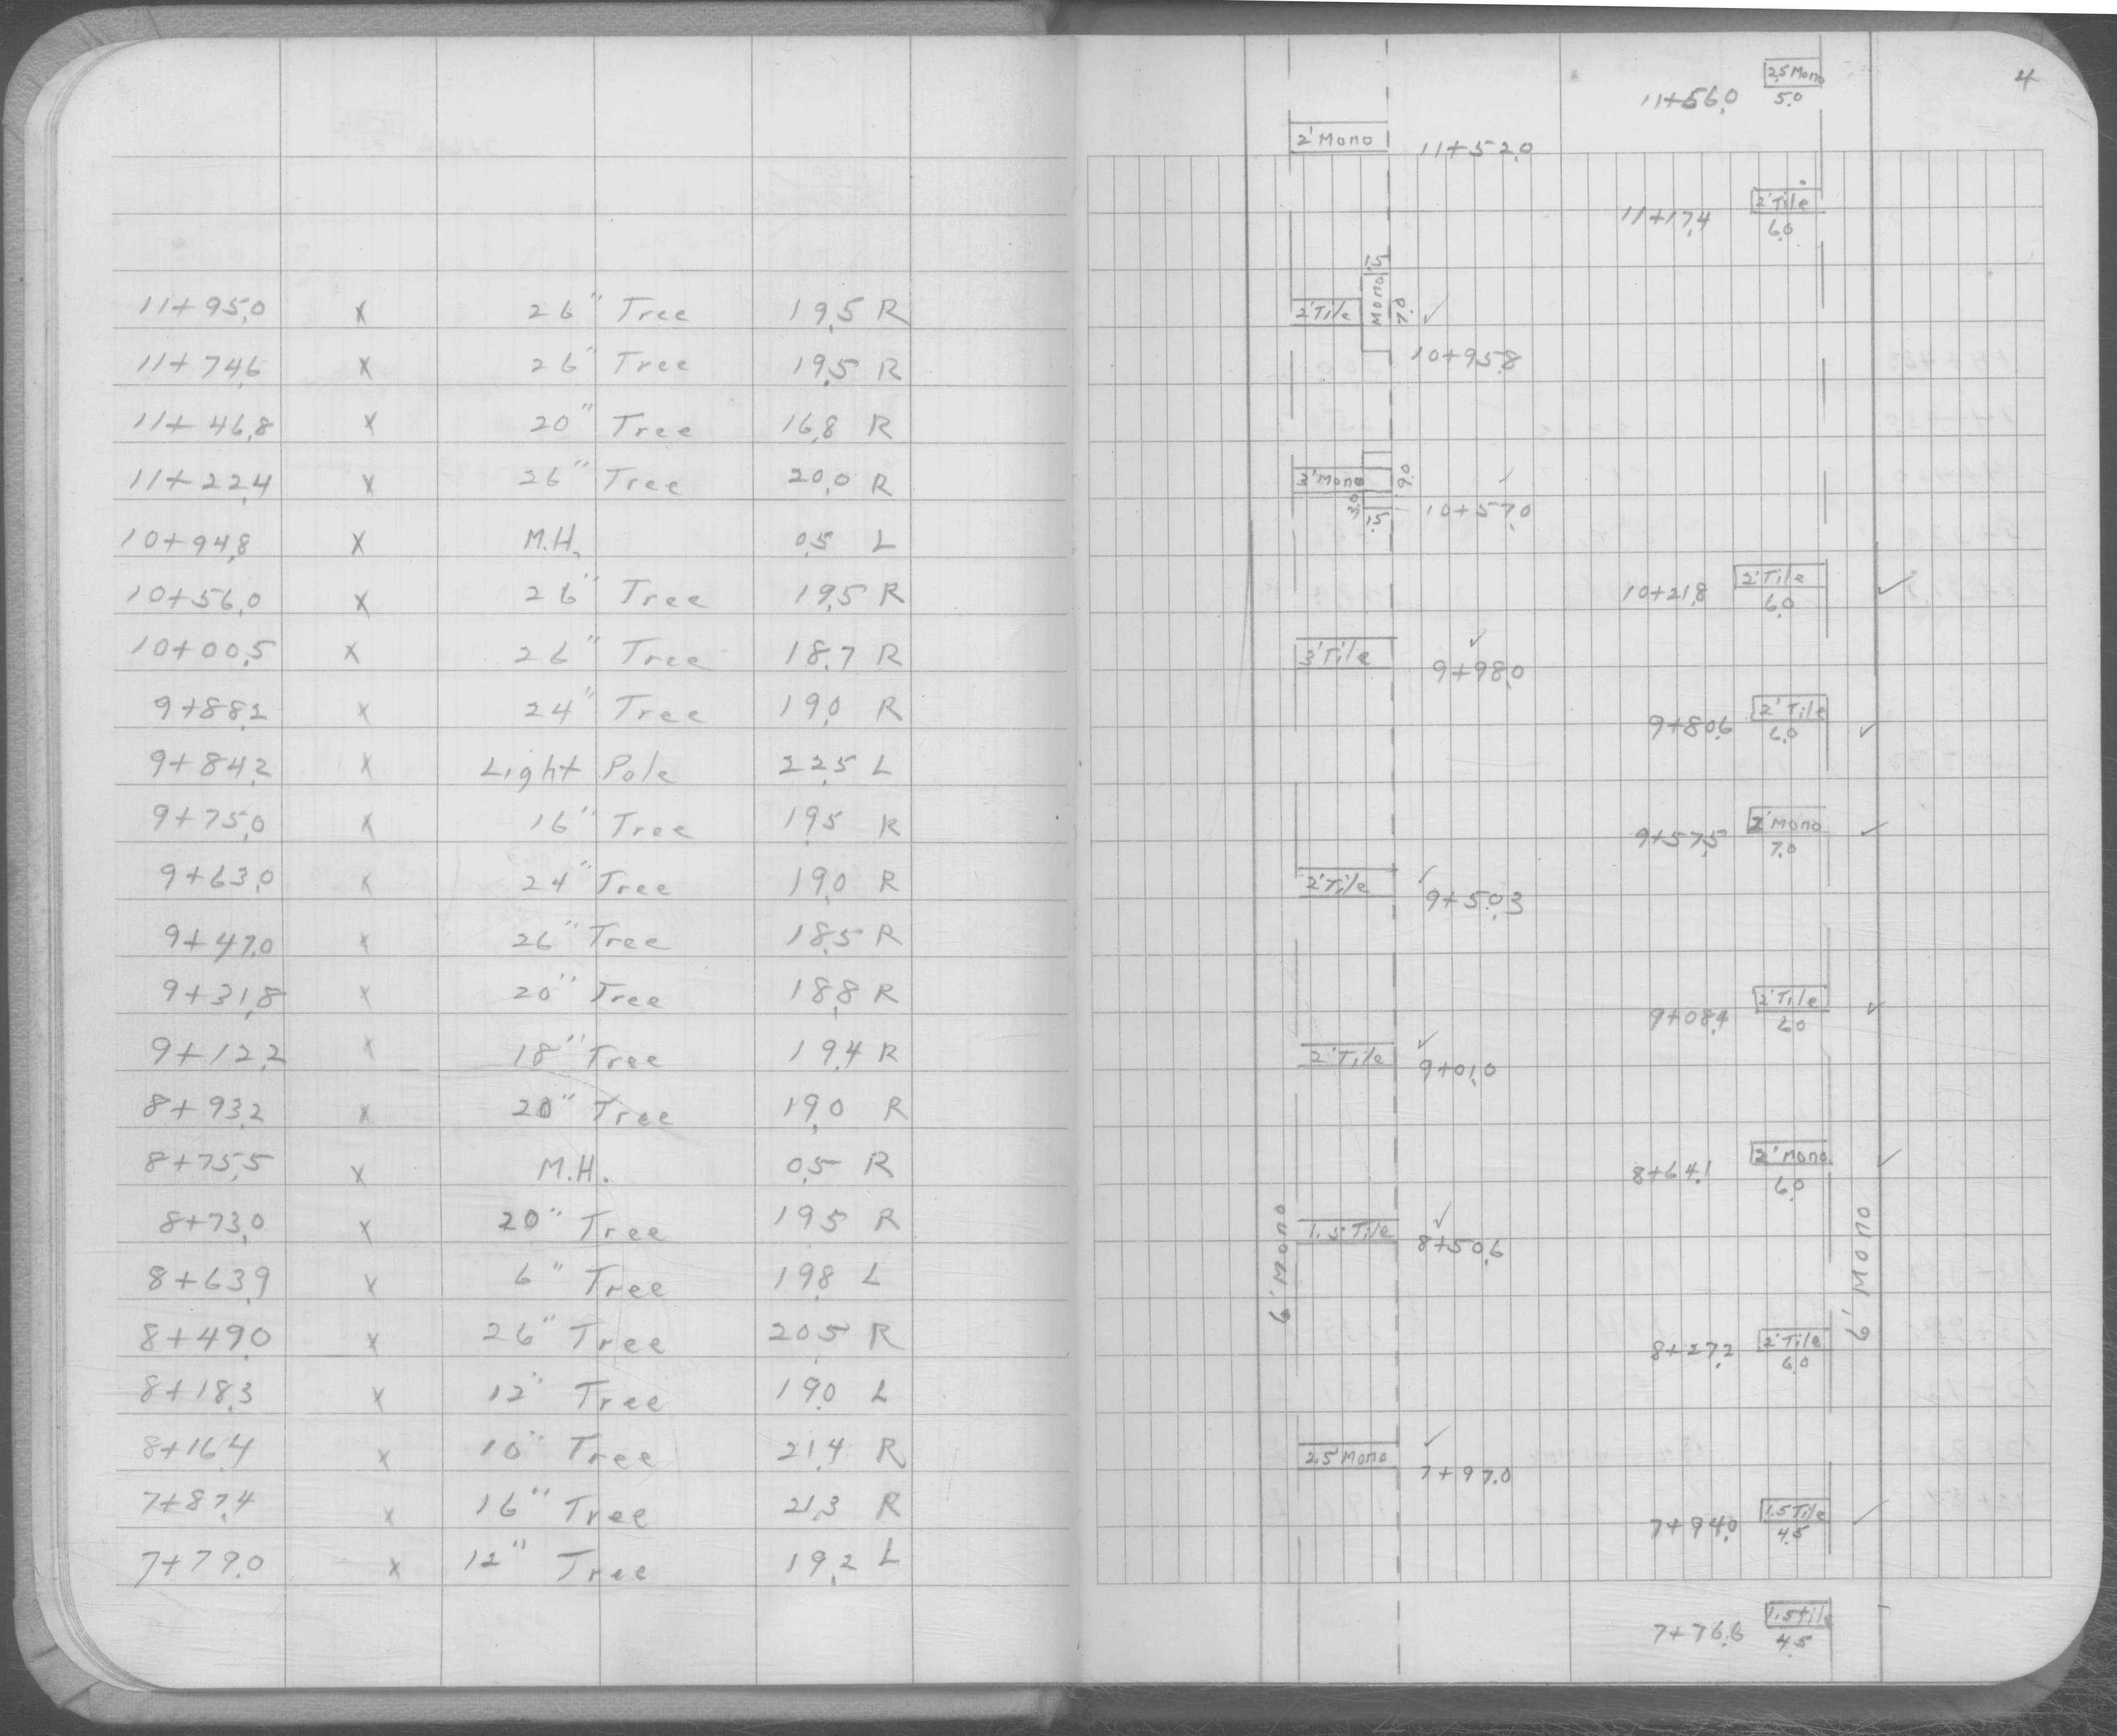 11+95.0 x 26" Tree 19.5 R
11+74.6 x 26" Tree 19.5 R
11+46.8 x 20" Tree 16.8 R
11+22.4 x 26" Tree 20.0 R
10+94.8 x M.H. 0.5 L
10+56.0 x 26" Tree 19.5 R
10+00.5 x 26" Tree 18.7 R
9+88.2 x 24" Tree 19.0 R
9+84.2 x Light Pole 22.5 L
9+75.0 x 16" Tree 19.5 R
9+63.0 x 24" Tree 19.0 R
9+47.0 x 26" Tree 18.5 R
9+31.8 x 20" Tree 18.8 R
9+12.2 x 18" Tree 19.4 R
8+93.2 x 20" Tree 19.0 R
8+75.5 x M.H. 0.5 R
8+73.0 x 20" Tree 19.5 R
8+63.9 x 6" Tree 19.8 L
8+49.0 x 26" Tree 20.5 R
8+18.3 x 12" Tree 19.0 L
8+16.4 x 10" Tree 21.4 R
7+87.4 x 16" Tree 21.3 R
7+79.0 x 12" Tree 19.2 L
4
2.5 Mono
11+56.0 5.0
2' Mono 11+52.0
2' Tile
11+17.4 6.0
2' Tile Mono 1.5 7.0 ✓
10+95.8
3' Mono 9.0 ✓
3.0 1.5 10+57.0
2' Tile ✓
10+21.8 6.0
3' Tile ✓ 9+98.0
2' Tile
9+80.6 6.0 ✓
2' Mono ✓
9+57.5 7.0
2' Tile ✓ 9+50.3
2' Tile ✓
9+08.4 6.0
2' Tile ✓ 9+01.0
2' Mono ✓
8+64.1 6.0
6' Mono
1.5 Tile ✓ 8+50.6
6' Mono
2' Tile
8+27.2 6.0
2.5 Mono ✓ 7+97.0
1.5 Tile ✓
7+94.0 4.5
1.5 Tile
7+76.6 4.5